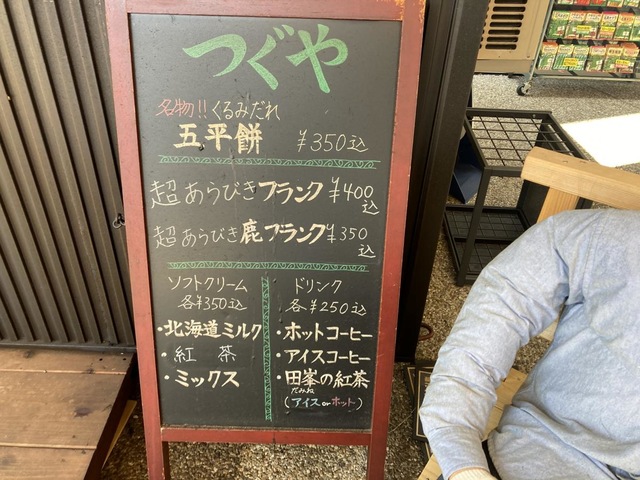 つぐや
名物!! くるみだれ
五平餅 ¥350込
超あらびきフランク ¥400込
超あらびき鹿フランク ¥350込
ソフトクリーム
各¥350込
・北海道ミルク
・紅茶
・ミックス
ドリンク
各¥250込
・ホットコーヒー
・アイスコーヒー
・田峯の紅茶
だみね
(アイスorホット)